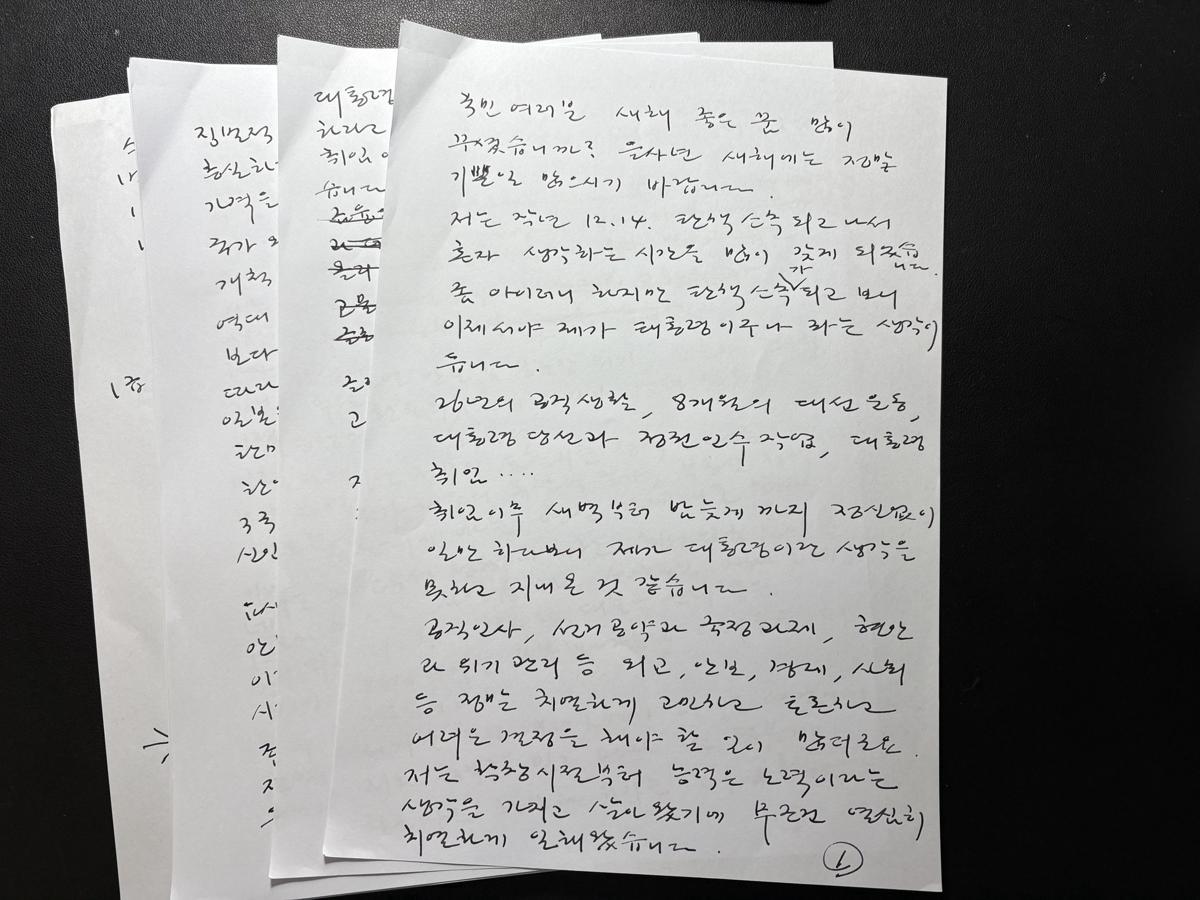 국민 여러분 새해 좋은 꿈 많이
꾸셨습니까? 을사년 새해에는 정말
기쁜일 많으시기 바랍니다.
저는 작년 12.14. 탄핵 소추 되고 나서
혼자 생각하는 시간을 많이 갖게 되었습니다.
좀 아이러니 하지만 탄핵소추가 되고 보니
이제서야 제가 대통령이구나 하는 생각이
듭니다.
26년의 공직생활, 8개월의 대선 운동,
대통령 당선과 정권 인수 작업, 대통령
취임 ....
취임이후 새벽부터 밤늦게 까지 정신없이
일만 하다보니 제가 대통령이란 생각을
못하고 지내온 것 같습니다.
공직인사, 선거공약과 국정과제, 현안
과 위기 관리 등 외교, 안보, 경제, 사회
등 치열하게 고민하고 토론하고
어려운 결정을 해야 할 일이 많더군요.
저는 학창시절부터 능력은 노력이라는
생각을 가지고 살아왔기에 무조건 열심히
치열하게 일해왔습니다.
1
대통령
하라고
취임
습니다
징벌적
충실하
가격을
국가
개척
역대
보다
따라
일본
3국